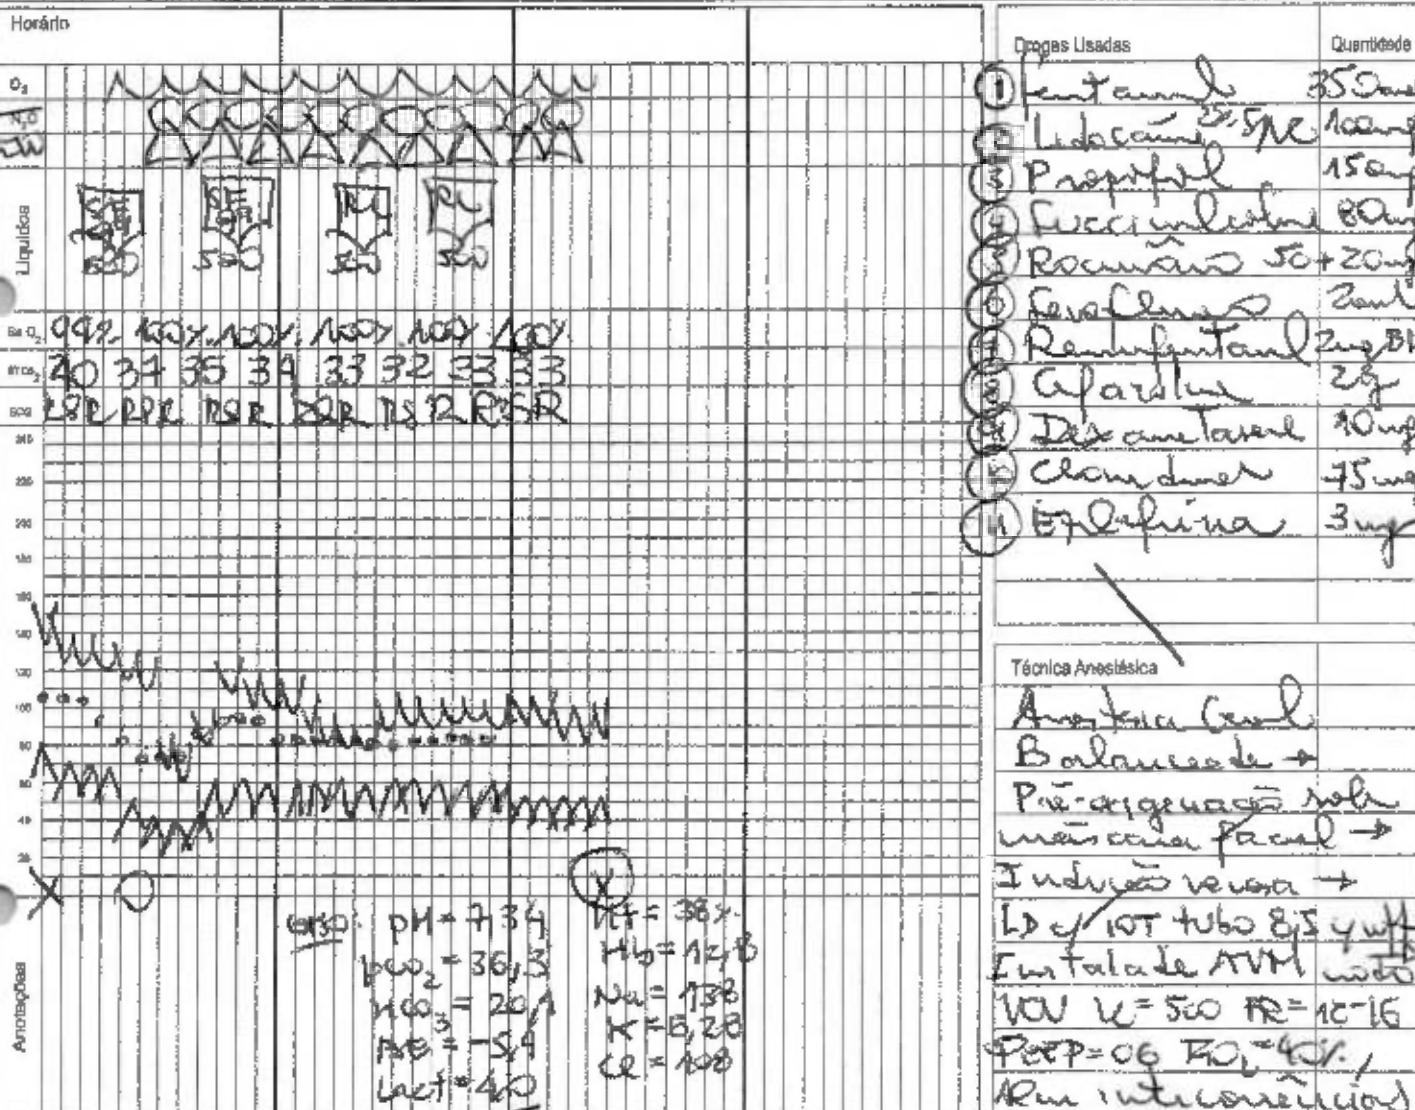 Horário
O₂
N₂O
Líquidos
SF 500
SF 500
RL 500
RL 500
Sa O₂ 99% 100% 100% 100% 100% 100%
40 37 35 34 33 32 33 33
ECG RSR RSR RSR RSR RSR RSR
240
220
200
180
140
120
100
80
60
40
20
X O X
Anotações
pH = 7,34
pCO₂ = 36,3
HCO₃ = 20,1
BE = -5,4
Lact = 4,0
Ht = 38%
Hb = 12,8
Na = 138
Cl = 108
Drogas Usadas Quantidade
1 Fentanil
Lidocaína 2% S/VC 100mg
3 Propofol
Succinilcolina 80mg
Rocurônio 50+20mg
Sevoflurano 20ml
Remifentanil 2mg
8 Cefazolina 2g
Dexametasona 10mg
75
11 3mg
Técnica Anestésica
Anestesia Geral
Balanceada →
Pré-oxigenação sob
máscara facial →
Indução venosa →
LD c/ IOT tubo 8,5
Instalada AVM
VCV VC=500 FR=12-16
PEEP=06 FiO₂=40%
Sem intercorrências